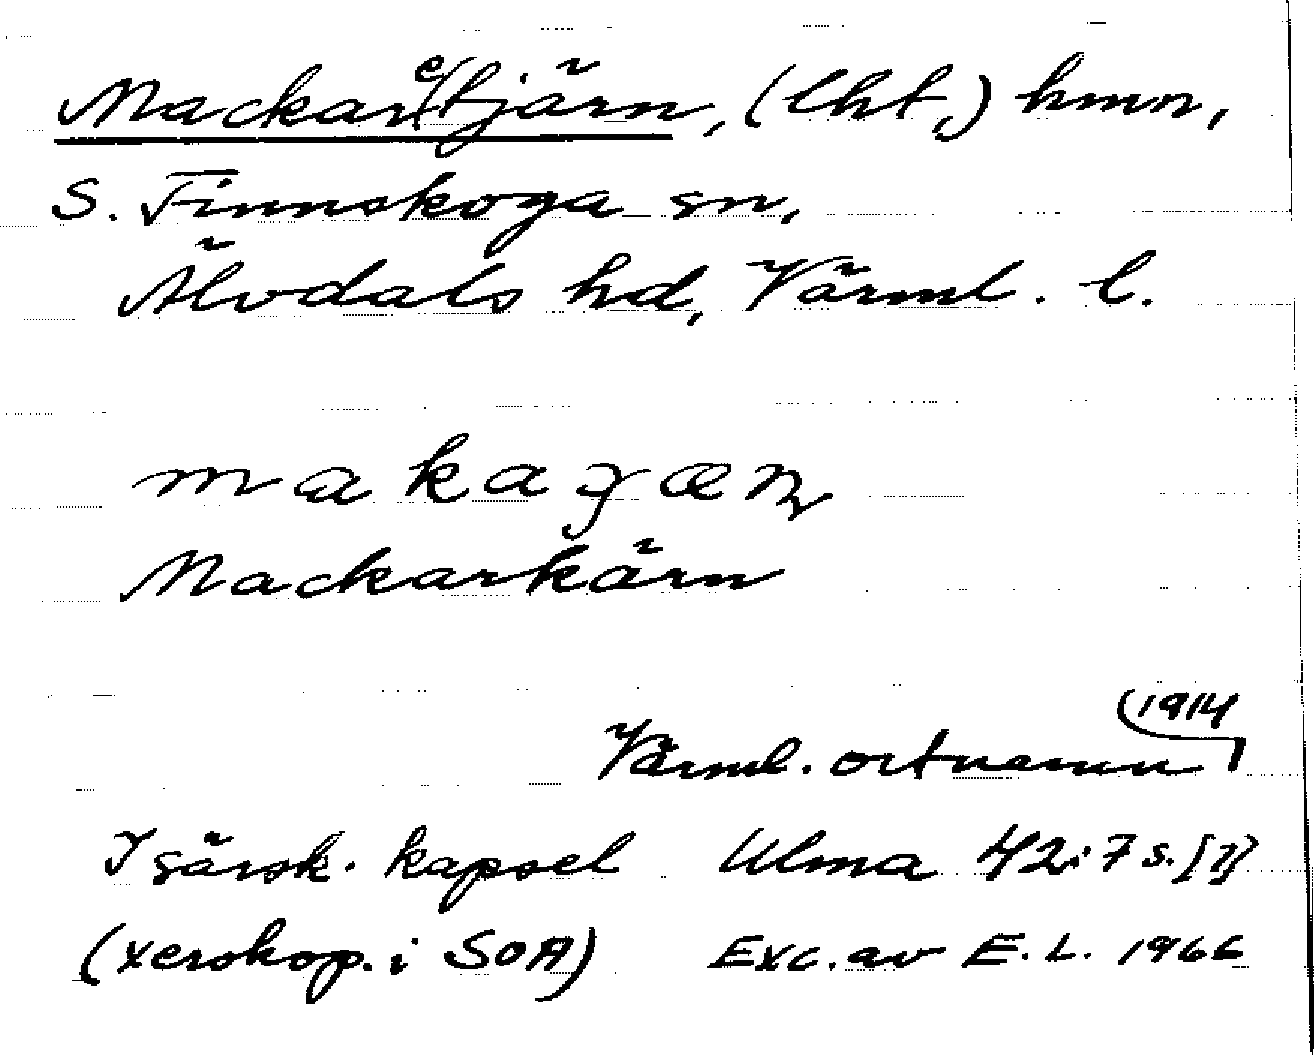 Mackar(e)tjärn, (lht,) hmn,
S. Finnskoga sn,
Älvdals hd, Värml. l.
makaɟæɳ
Mackarkärn
Värml. ortnamn 1914
I särsk. kapsel Ulma 42:7 s. [1]
(xerokop. i SOA) Exc. av E. L. 1966